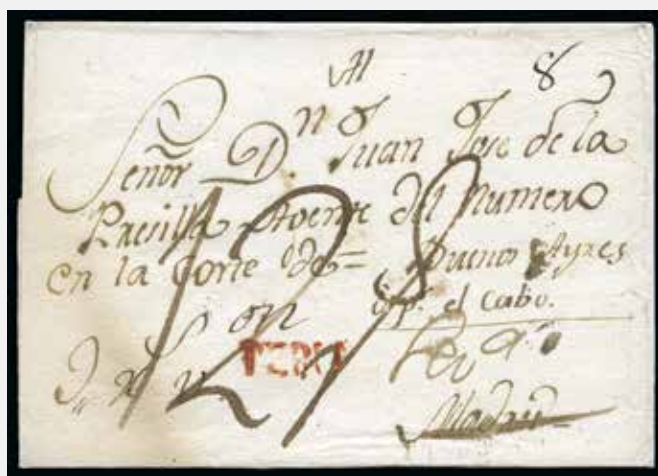 Al 8
Señor D.n Juan Jose de la
Presilla Agente del Numero
en la Corte de = Buenos Ayres
pr. el Cabo.
PERU
128
Madrid